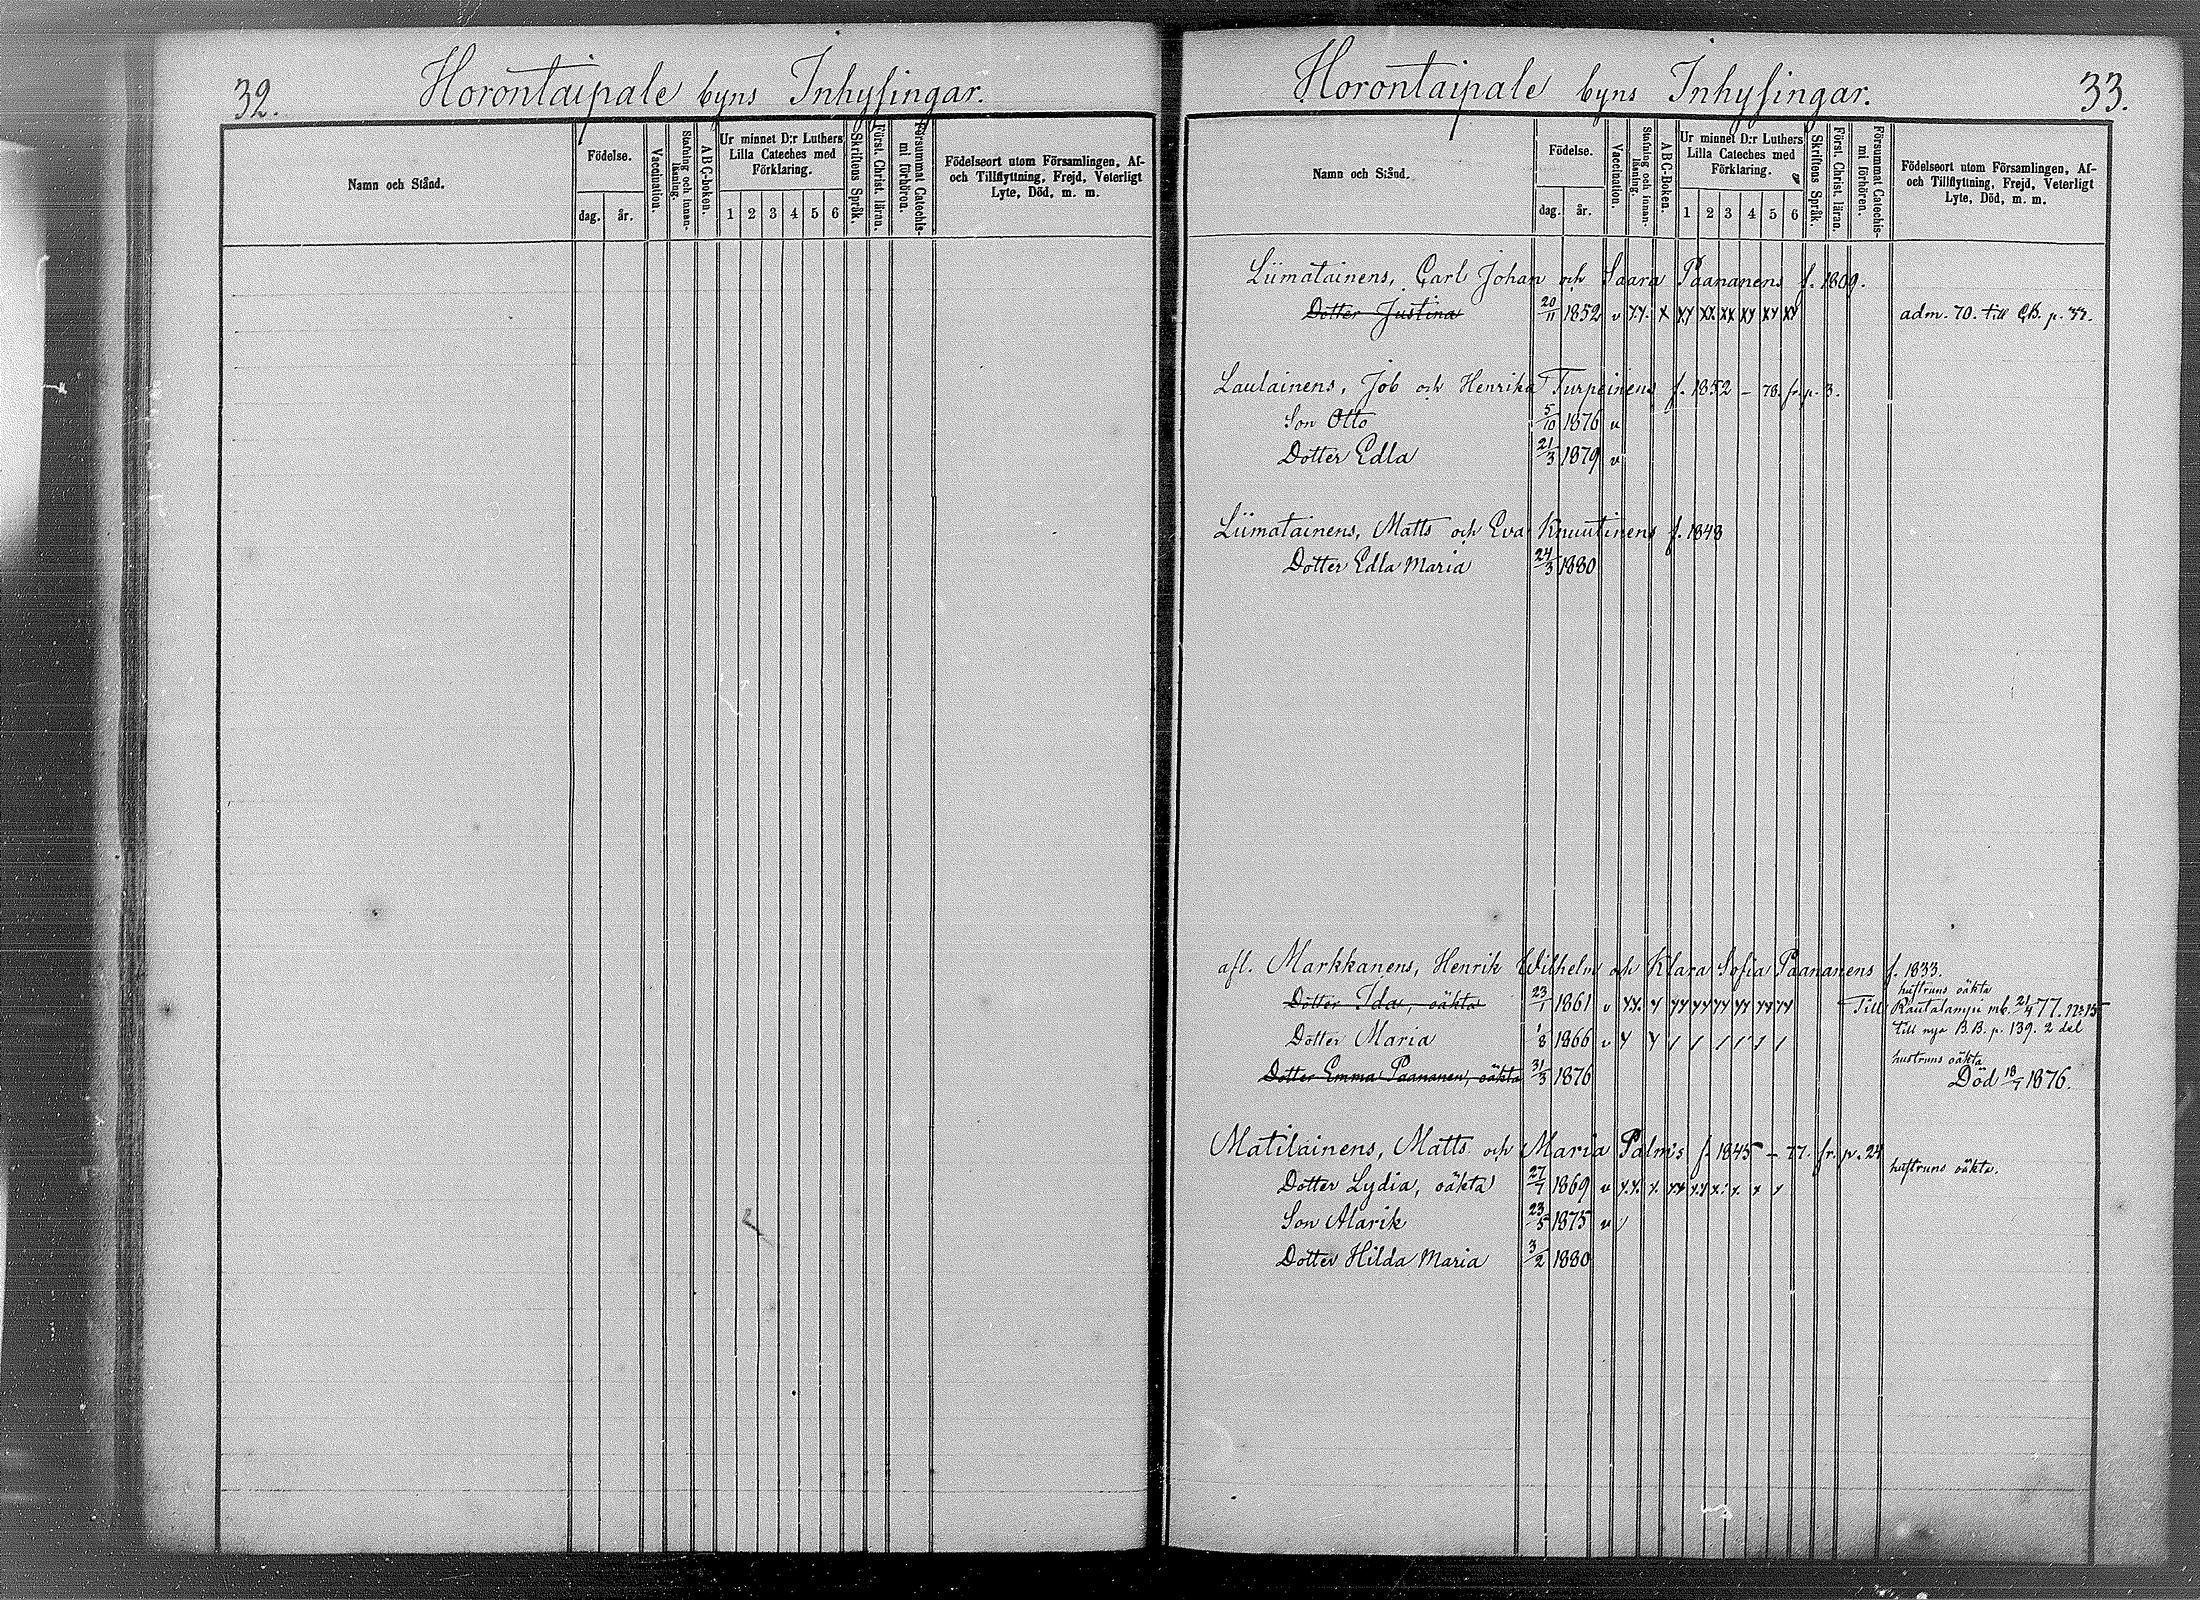 32.
Horontaipale byns Inhysingar.
Namn och Stånd.
Födelse.
dag. år.
Vaccination.
Stafning och innan-läsning.
ABC-boken.
Ur minnet D:r Luthers
Lilla Cateches med
Förklaring.
1 2 3 4 5 6
Skriftens Språk.
Först. Christ. läran.
Försummat Catechis-
mi förhören.
Födelseort utom Församlingen, Af-
och Tillflyttning, Frejd, Veterligt
Lyte, Död, m. m.
Horontaipale byns Inhysingar.
33.
Namn och Stånd.
Födelse.
dag. år.
Vaccination.
Stafning och innan-läsning.
ABC-Boken.
Ur minnet D:r Luthers
Lilla Cateches med
Förklaring.
1 2 3 4 5 6
Skriftens Språk.
Först. Christ. läran.
Försummat Catechis-
mi förhören.
Födelseort utom Församlingen, Af-
och Tillflyttning, Frejd, Veterligt
Lyte, Död, m. m.
Liimatainens, Carl Johan och Saara Paananens f. 1809.
Dotter Justina 20/11 1852 v xx. x xx xx xx xx xx xx adm. 70. till CB. p. 33.
Laulainens, Job och Henrika Turpeinens f. 1852 – 78. fr. p. 3.
Son Otto 5/10 1876 v
Dotter Edla 21/3 1879 v
Liimatainens, Matts och Eva Knuutinens f. 1848
Dotter Edla Maria 24/3 1880
afl. Markkanens, Henrik Wilhelm och Klara Sofia Paananens f. 1833.
hustruns oäkta
Dotter Ida, oäkta 23/1 1861 v xx. x xx xx xx xx xx xx Till Rautalampi mb. 21/4 77. No 15
Dotter Maria 1/8 1866 v x x / / / / / / till nya B.B. p. 139. 2 del
hustruns oäkta
Dotter Emma Paananen, oäkta 31/3 1876 Död 18/7 1876.
Matilainens, Matts och Maria Palms f. 1845 – 77. fr. p. 24
hustruns oäkta.
Dotter Lydia, oäkta 27/7 1869 v x.x. x. xx xx x. x. x x
Son Alarik 23/5 1875 v /
Dotter Hilda Maria 3/2 1880